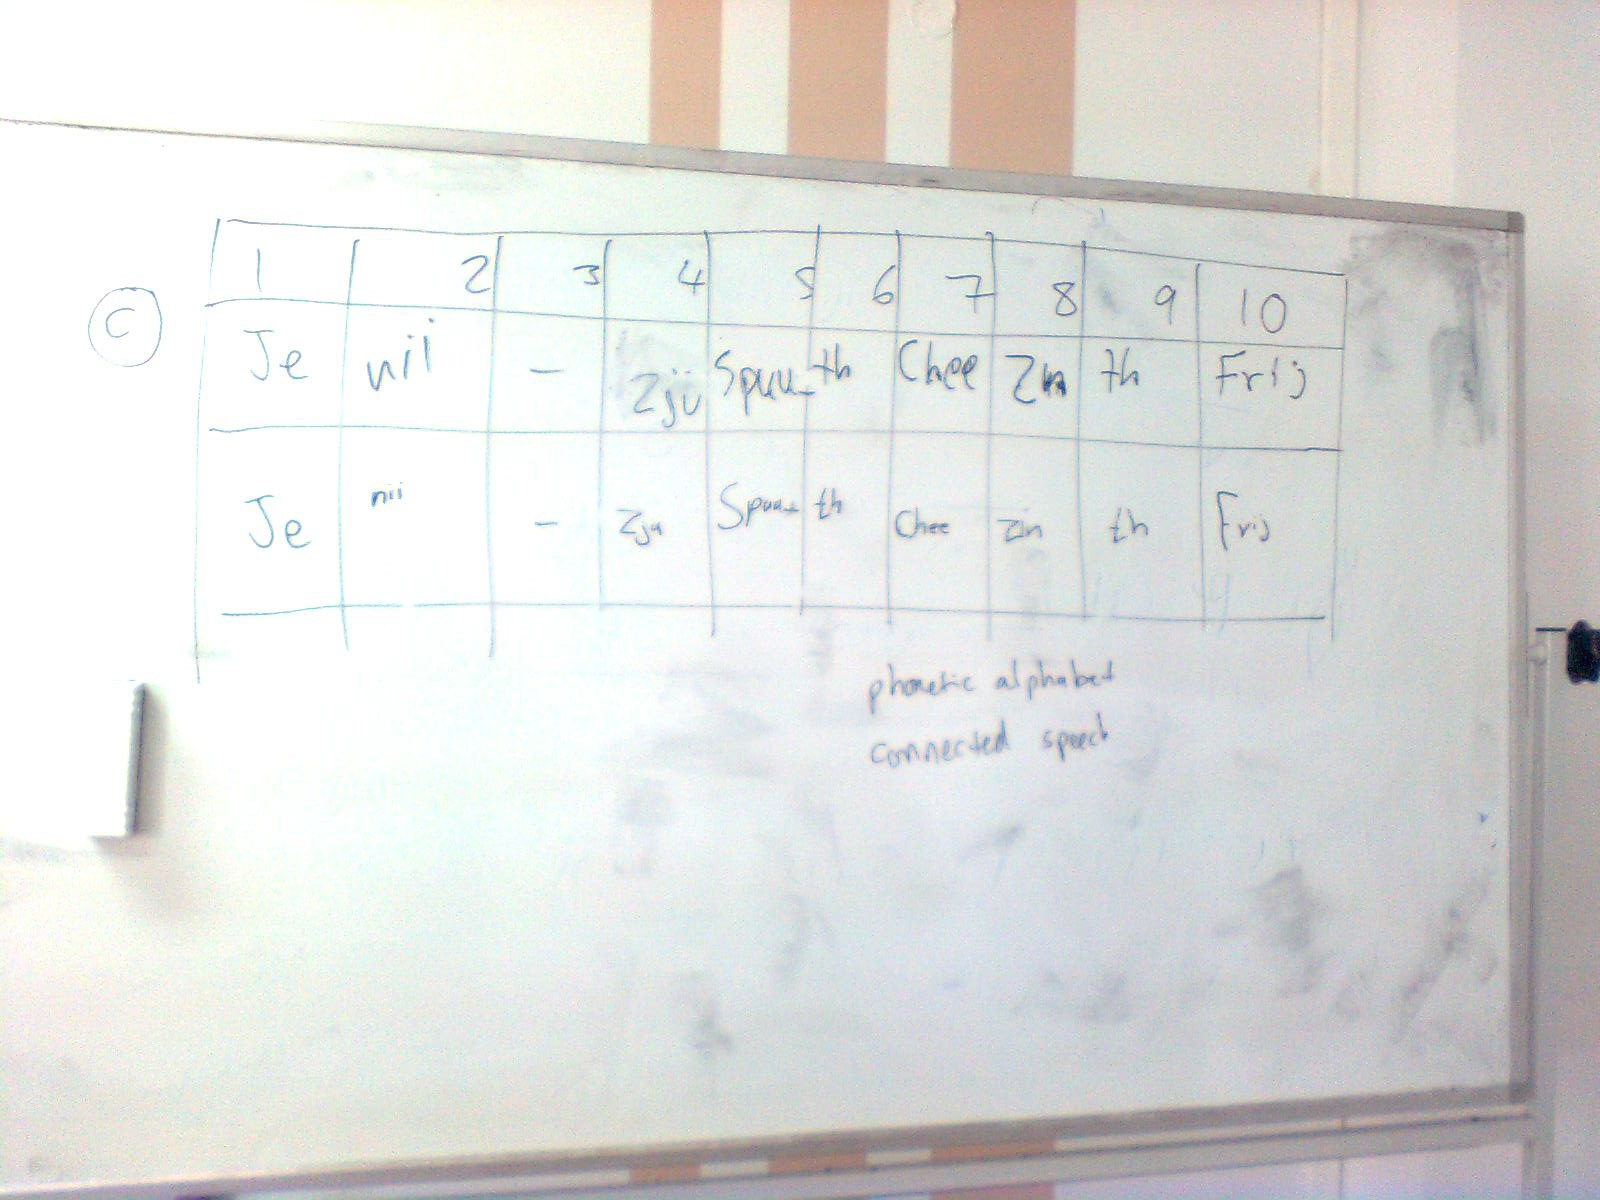 1 2 3 4 5 6 7 8 9 10
C
Je nii - Zju Spuu_ th Chee Zin th Frij
Je nii - Zju Spuu_ th Chee Zin th Frij
phonetic alphabet
connected speech